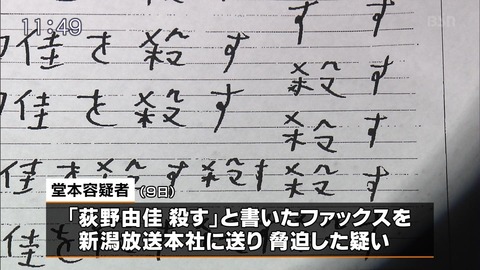 11:49
BSN
す す
佳を殺す 殺す
佳を殺す 殺す
佳を殺す殺す 殺す
堂本容疑者(9日)
「荻野由佳 殺す」と書いたファックスを
新潟放送本社に送り 脅迫した疑い